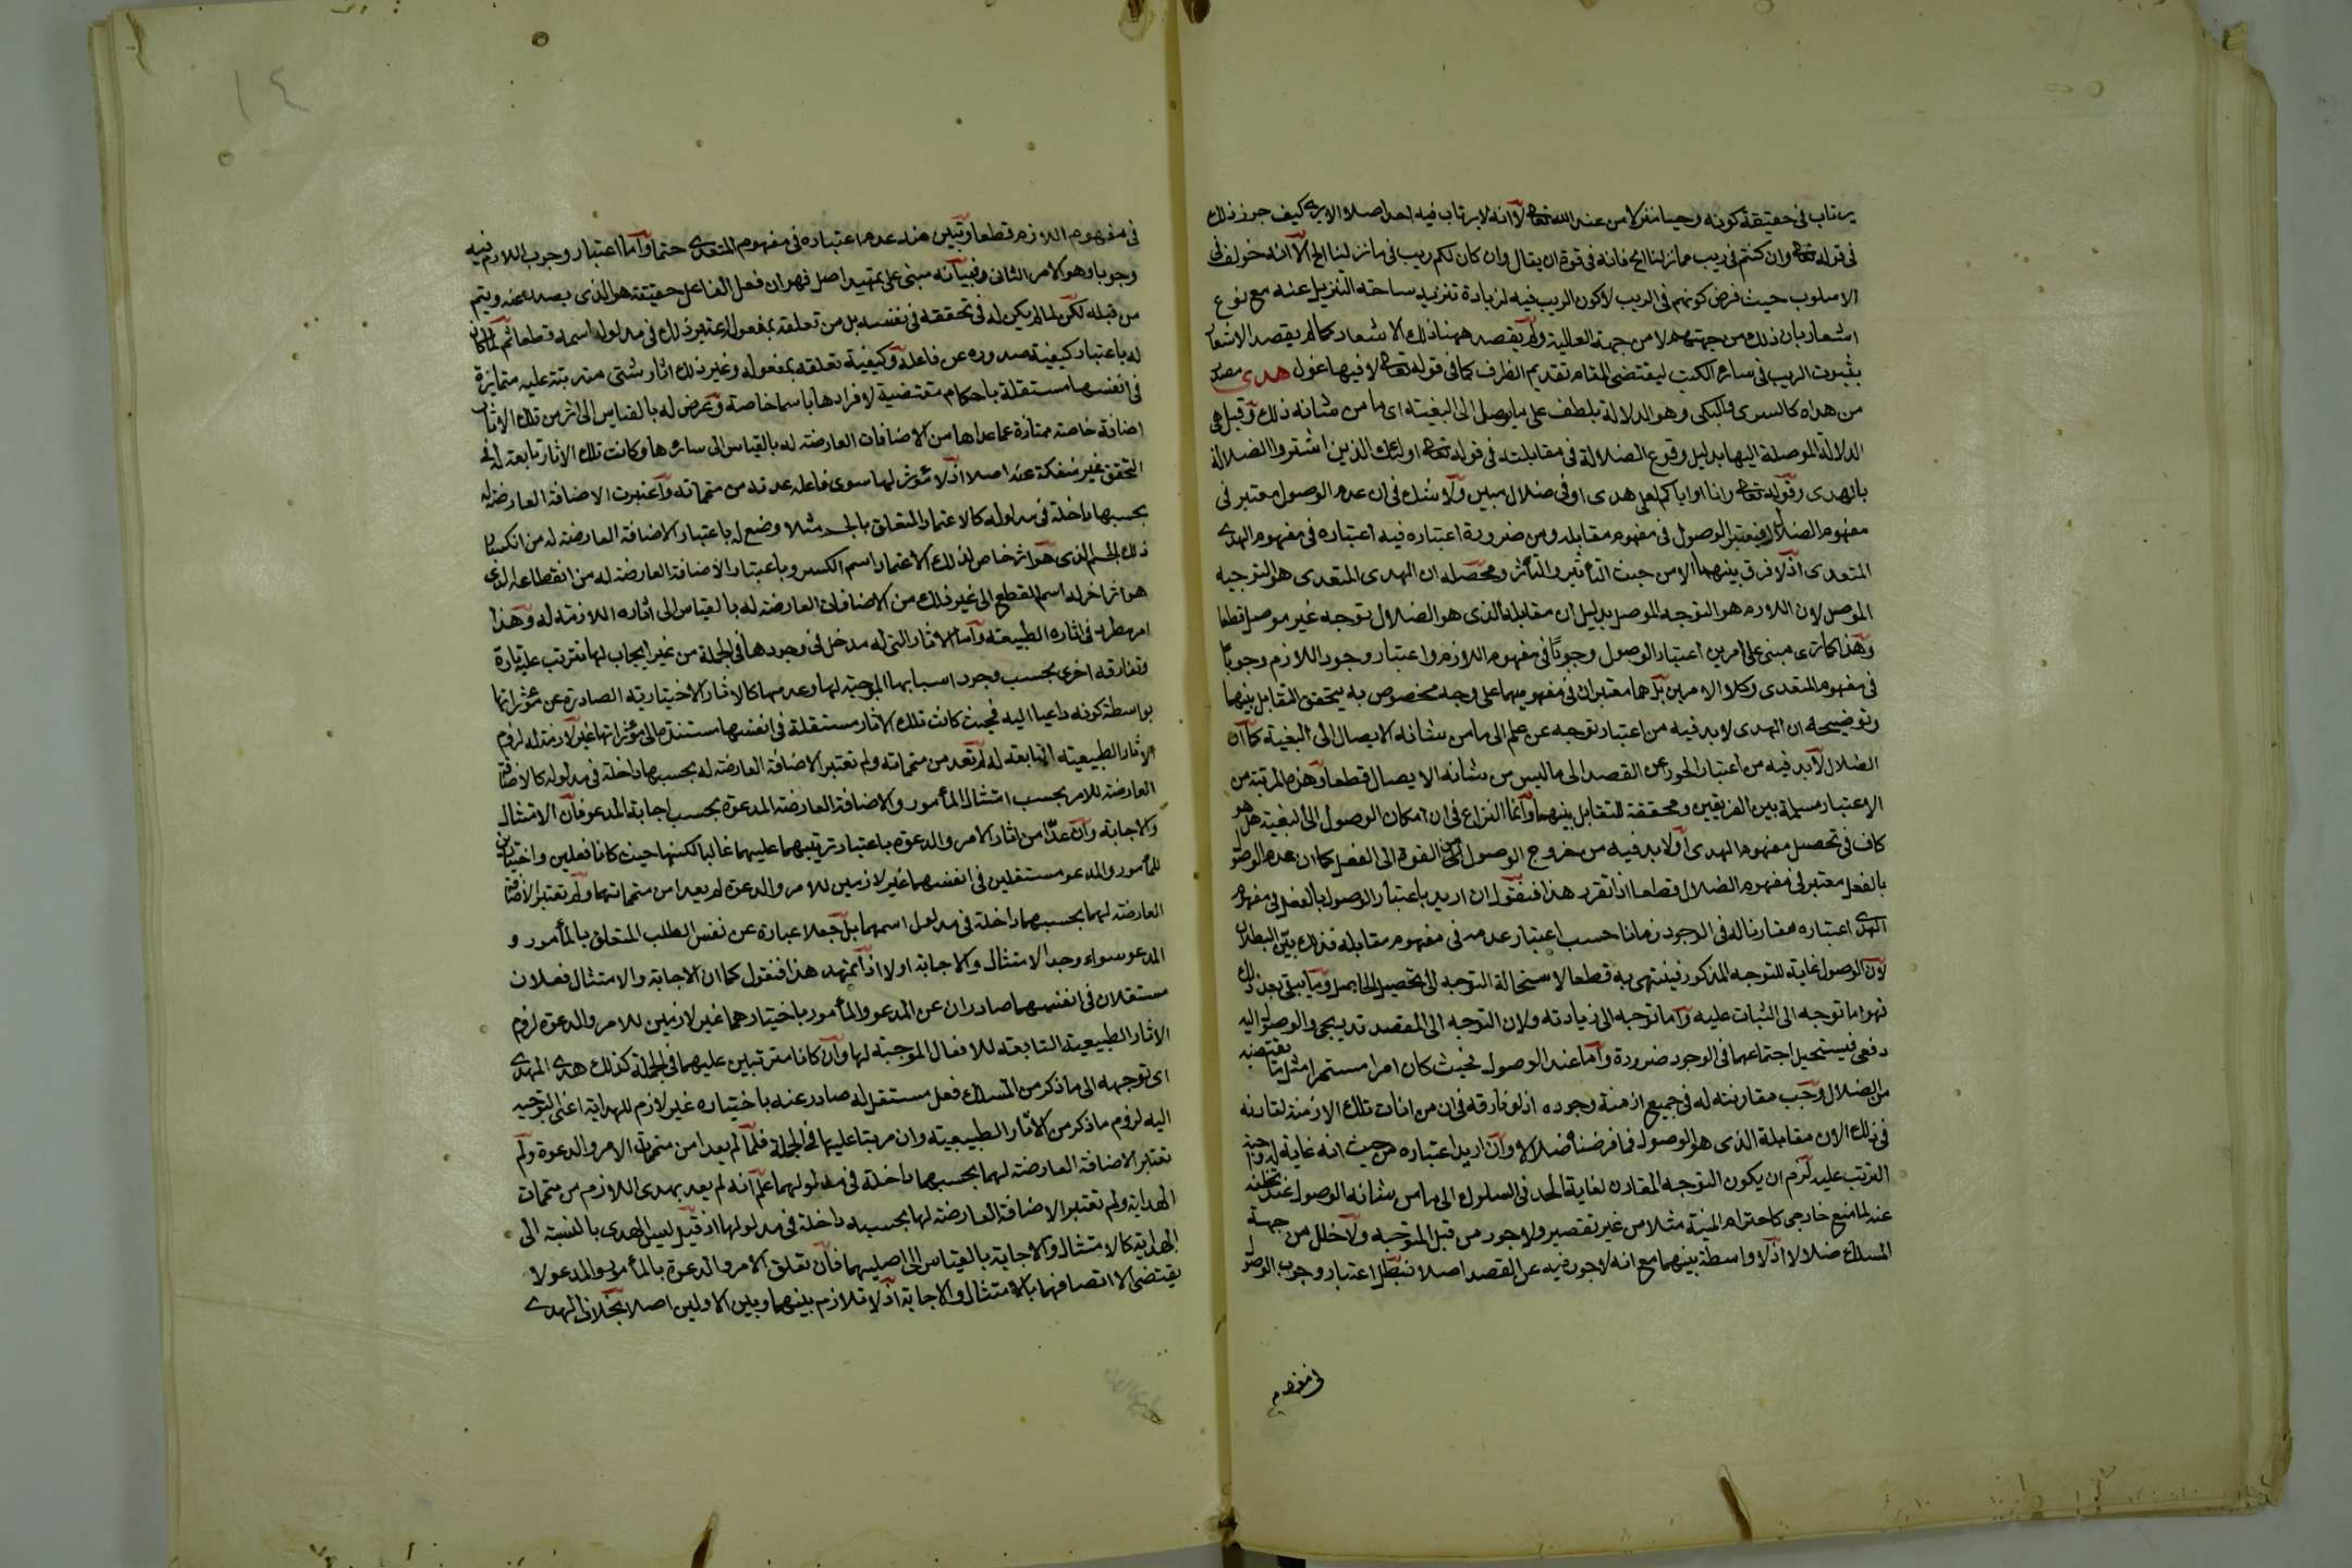 يرتاب في حقيقة كونه وحيا منزلا من عند الله تعالى لا انه لا يرتاب فيه احد اصلا الا يرى كيف جوز ذلك
في قوله تعالى وان كنتم في ريب مما نزلنا الخ فانه في قوة ان يقال وان كان لكم ريب في ما نزلنا الخ الا انه خولف في
الاسلوب حيث فرض كونهم في الريب لا كون الريب فيه لزيادة تنزيه ساحة التنزيل عنه مع نوع
اشعار بان ذلك من جهتهم لا من جهة العالية ولم يقصد ههنا ذلك الاشعار كما لم يقصد الاشعار
بثبوت الريب في سائر الكتب ليقتضي المقام تقديم الظرف كما في قوله تعالى لا فيها غول هدى مصدر
من هداه كالسرى والبكى وهو الدلالة بلطف على ما يوصل الى البغية اي ما من شانه ذلك وقيل هي
الدلالة الموصلة اليها بدليل وقوع الضلالة في مقابلته في قوله تعالى اولئك الذين اشتروا الضلالة
بالهدى وقوله تعالى وانا او اياكم لعلى هدى او في ضلال مبين ولا شك في ان عدم الوصول معتبر في
مفهوم الضلال فيعتبر الوصول في مفهوم مقابله ومن ضرورة اعتباره فيه اعتباره في مفهوم الهدى
المتعدي اذ لا فرق بينهما الا من حيث التاثير والتأثر ومحصله ان الهدى المتعدي هو التوجيه
الموصل لان اللازم هو التوجه الموصل بدليل ان مقابله الذي هو الضلال توجه غير موصل قطعا
وهذا كما ترى مبني على امرين اعتبار الوصول وجوبا في مفهوم اللازم واعتبار وجود اللازم وجوبا
في مفهوم المتعدي وكلا الامرين بل هما معتبران في مفهوميهما على وجه مخصوص به يتحقق التقابل بينهما
وتوضيحه ان الهدى لا بد فيه من اعتبار توجه عن علم الى ما من شانه الايصال الى البغية كما ان
الضلال لا بد فيه من اعتبار الجور عن القصد الى ما ليس من شانه الايصال قطعا وهذه المرتبة من
الاعتبار مسلمة بين الفريقين ومحققة للتقابل بينهما وانما النزاع في ان امكان الوصول الى البغية هل هو
كاف في تحصيل مفهوم الهدى او لا بد فيه من خروج الوصول من القوة الى الفعل كما ان عدم الوصول
بالفعل معتبر في مفهوم الضلال قطعا اذا تقرر هذا فنقول ان اريد باعتبار الوصول بالفعل في مفهوم
الهدى اعتباره مقارنا له في الوجود زمانا حسب اعتبار عدمه في مفهوم مقابله فذلك بين البطلان
لان الوصول غاية للتوجه المذكور فينتهي به قطعا لاستحالة التوجه الى تحصيل الحاصل وما يبقى بعد ذلك
فهو اما توجه الى الثبات عليه واما توجه الى زيادته ولان التوجه الى المقصد تدريجي والوصول اليه
دفعي فيستحيل اجتماعهما في الوجود ضرورة واما عدم الوصول فحيث كان امرا مستمرا مثل ما يقتضيه
من الضلال وجب مقارنته له في جميع ازمنة وجوده اذ لو فارقه في ان من انات تلك الازمنة لقارنه
في ذلك الان مقابله الذي هو الوصول فما فرضناه ضلالا لا وان اريد اعتباره من حيث انه غاية له واجبة
الترتب عليه لزم ان يكون التوجه المقارن لغاية الجد في السلوك الى ما من شانه الوصول عند تخلفه
عنه لمانع خارجي كاحترام المنية مثلا من غير تقصير ولا جور من قبل المتوجه ولا خلل من جهة
المسلك ضلالا اذ لا واسطة بينهما مع انه لا جور فيه عن القصد اصلا فبطل اعتبار وجوب الوصول
في مفهوم
١٤
في مفهوم اللازم قطعا وتبين منه عدم اعتباره في مفهوم المتعدي حتما واما اعتبار وجوب اللازم فيه
وجوبا وهو الامر الثاني فبيانه مبني على تمهيد اصل فهو ان فعل الفاعل حقيقة هو الذي يصدر عنه ويتم
من قبله لكن لما لم يكن له في تحققه في نفسه بل من تعلقه بمفعوله اعتبر ذلك في مدلول اسمه قطعا ثم لما كان
له باعتبار كيفية صدوره عن فاعله وكيفية تعلقه بمفعوله وغير ذلك اثار شتى مترتبة عليه متمايزة
في انفسها مستقلة باحكام مقتضية لافرادها باسما خاصة وعرض له بالقياس الى اثر من تلك الاثار
اضافة خاصة ممتازة عما عداها من الاضافات العارضة له بالقياس الى سائرها وكانت تلك الاثار تابعة له في
التحقق غير منفكة عنه اصلا اذ لا مؤثر لها سوى فاعله عدت من متمماته واعتبرت الاضافة العارضة له
بحسبها داخلة في مدلوله كالاعتماد المتعلق بالجسم مثلا وضع له باعتبار الاضافة العارضة له من انكسار
ذلك الجسم الذي هو اثر خاص لذلك الاعتماد اسم الكسر وباعتبار الاضافة العارضة له من انقطاعه الذي
هو اثر اخر له اسم القطع الى غير ذلك من الاضافات العارضة له بالقياس الى اثاره اللازمة له وهذا
امر مطرد في اثاره الطبيعية واما الاثار التي له مدخل في وجودها في الجملة من غير ايجاب لها تترتب عليه تارة
وتفارقه اخرى بحسب وجود اسبابها الموجبة لها وعدمها كالاثار الاختيارية الصادرة عن مؤثراتها
بواسطة كونه داعيا اليه فحيث كانت تلك الاثار مستقلة في انفسها مستندة الى مؤثراتها غير لازمة له لزوم
الاثار الطبيعية التابعة له لم تعد من متمماته ولم تعتبر الاضافة العارضة له بحسبها داخلة في مدلوله كالاضافة
العارضة للامر بحسب امتثال المأمور والاضافة العارضة للدعوة بحسب اجابة المدعو فان الامتثال
والاجابة وان عدا من اثار الامر والدعوة باعتبار ترتبهما عليهما غالبا لكنهما حيث كانا فعلين واختياريين
للمأمور والمدعو مستقلين في انفسهما غير لازمين للامر والدعوة لم يعدا من متمماتهما ولم تعتبر الاضافة
العارضة لهما بحسبهما داخلة في مدلول اسمهما بل جعلا عبارة عن نفس الطلب المتعلق بالمأمور و
المدعو سواء وجد الامتثال والاجابة او لا اذا تمهد هذا فنقول كما ان الاجابة والامتثال فعلان
مستقلان في انفسهما صادران عن المدعو والمأمور باختيارهما غير لازمين للامر والدعوة لزوم
الاثار الطبيعية التابعة للافعال الموجبة لها وان كانا مترتبين عليهما في الجملة كذلك هدى المهدي
اي توجهه الى ما ذكر من المسلك فعل مستقل له صادر عنه باختياره غير لازم للهداية اعني التوجيه
اليه لزوم ما ذكر من الاثار الطبيعية وان مرتبا عليها في الجملة فلما لم يعدا من متممات الامر والدعوة ولم
تعتبر الاضافة العارضة لهما بحسبهما داخلة في مدلولهما علم انه لم يعد بهدى اللازم من متممات
الهداية ولم تعتبر الاضافة العارضة لها بحسبه داخلة في مدلولها اذ قيل ليس الهدى بالنسبة الى
الهداية كالامتثال والاجابة بالقياس الى اصليهما فان تعلق الامر والدعوة بالمأمور والمدعو لا
يقتضي الا اتصافهما بالامتثال والاجابة اذ لا تلازم بينهما وبين الاولين اصلا بخلاف الهدى